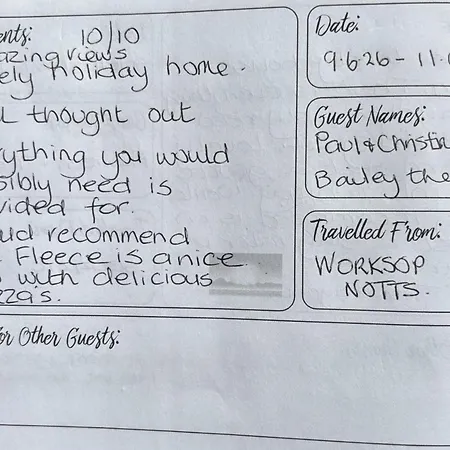 ents: 10/10
azing views
ely holiday home.
l thought out
rything you would
sibly need is
vided for.
uld recommend
Fleece is a nice
with delicious
zza's.
or Other Guests:
Date:
9.6.26 - 11.
Guest Names:
Paul & Christin
Bailey the
Travelled From:
WORKSOP
NOTTS.